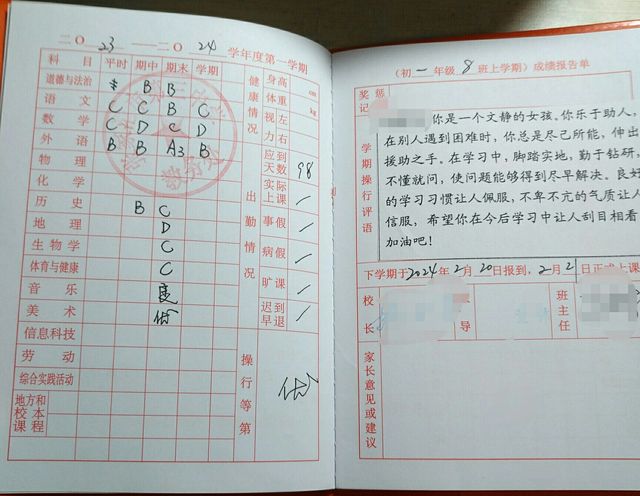 二〇23——二〇24学年度第一学期
科目 平时 期中 期末 学期
道德与法治 B B
语文 C C B C
数学 C D C D
外语 B B A3 B
物理
化学
历史 B C
地理 D
生物学 C
体育与健康 C
音乐
美术 优
信息科技
劳动
综合实践活动
地方和校本课程
健康情况
身高 cm
体重 kg
视左
力右
出勤情况
应到天数 98
实际上课 /
事假 /
病假 /
旷课 /
迟到早退 /
操行等第 优
(初一年级8班上学期)成绩报告单
奖惩记
学期操行评语
你是一个文静的女孩。你乐于助人,
在别人遇到困难时,你总是尽己所能,伸出
援助之手。在学习中,脚踏实地,勤于钻研,
不懂就问,使问题能够得到尽早解决。良好
的学习习惯让人佩服,不卑不亢的气质让人
信服,希望你在今后学习中让人刮目相看
加油吧!
下学期于2024年2月20日报到,2月2日正式上课
校长
导
班主任
家长意见或建议